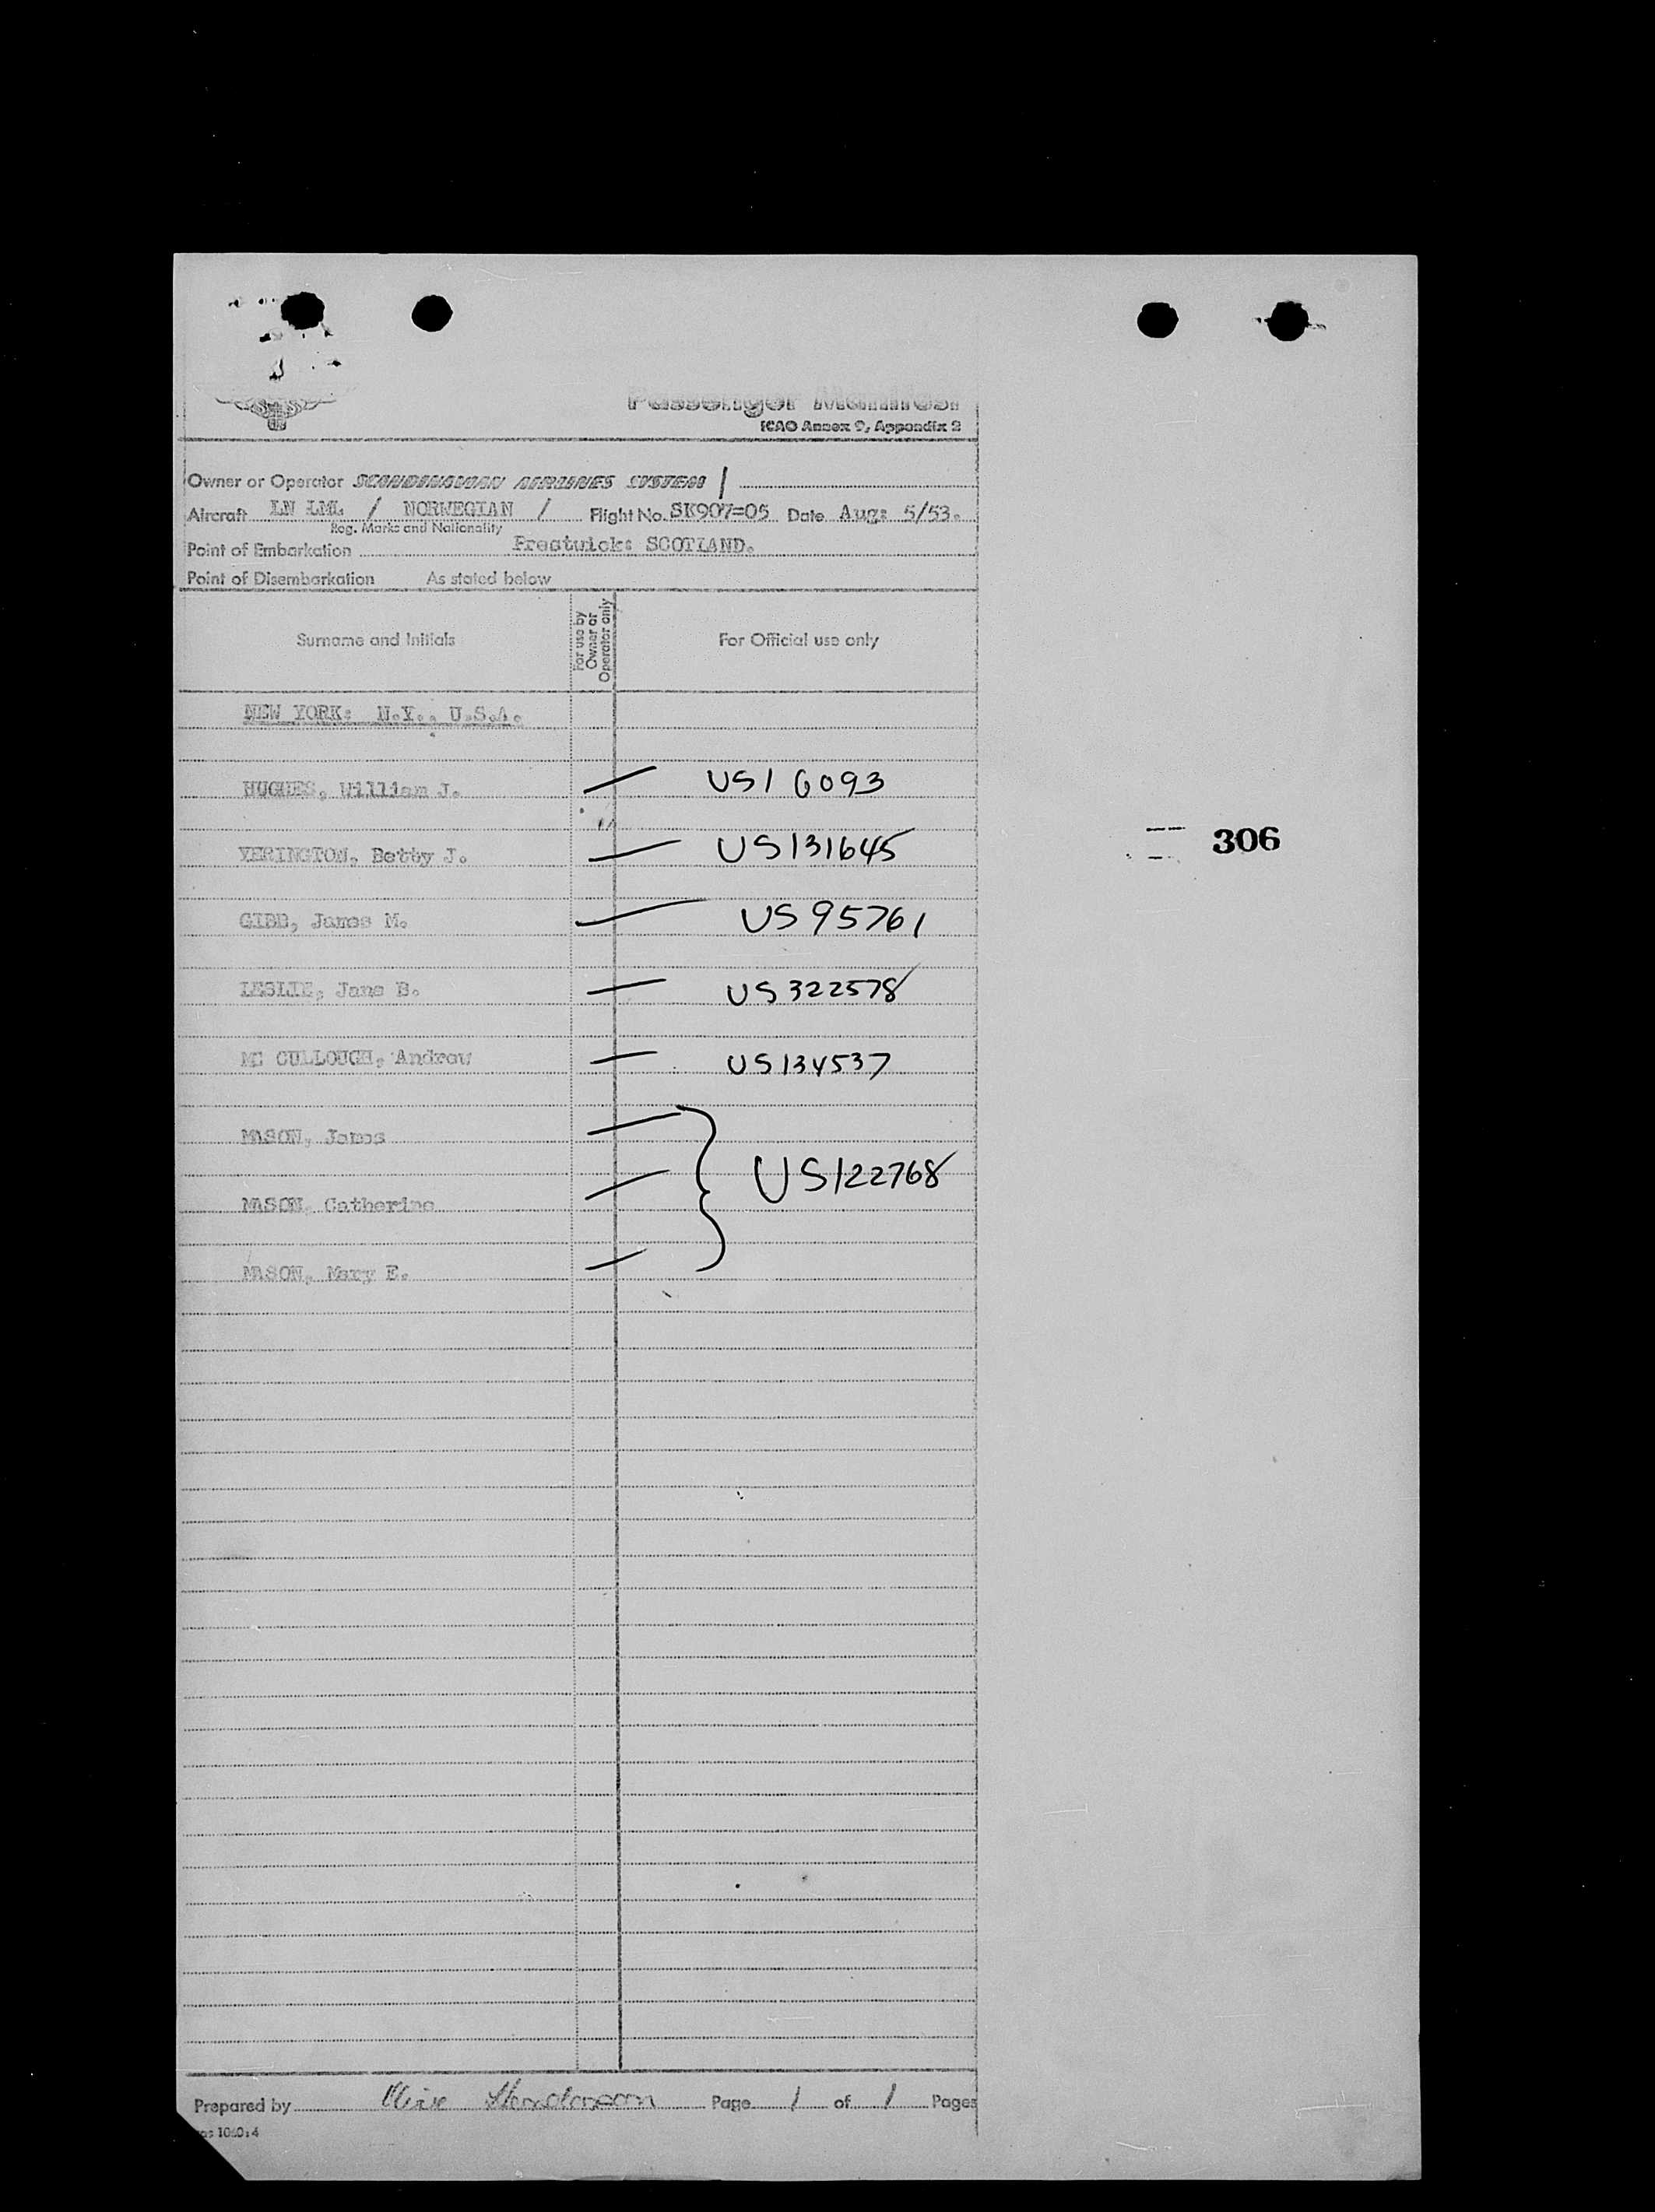 SAS
Passenger Manifest
ICAO Annex 9, Appendix 2
Owner or Operator SCANDINAVIAN AIRLINES SYSTEM /
Aircraft LN LML / NORWEGIAN / Flight No. SK907=05 Date Aug: 5/53.
Reg. Marks and Nationality
Point of Embarkation Prestwick: SCOTLAND.
Point of Disembarkation As stated below
Surname and Initials For use by Owner or Operator only For Official use only
NEW YORK: N.Y., U.S.A.
HUGHES, William J. US16093
YERINGTON, Betty J. US131645
306
GIBB, James M. US95761
LESLIE, Jane B. US322578
MC CULLOUGH, Andrew US134537
MASON, James
US122768
MASON, Catherine
MASON, Mary E.
Prepared by Olive Henderson Page 1 of 1 Pages